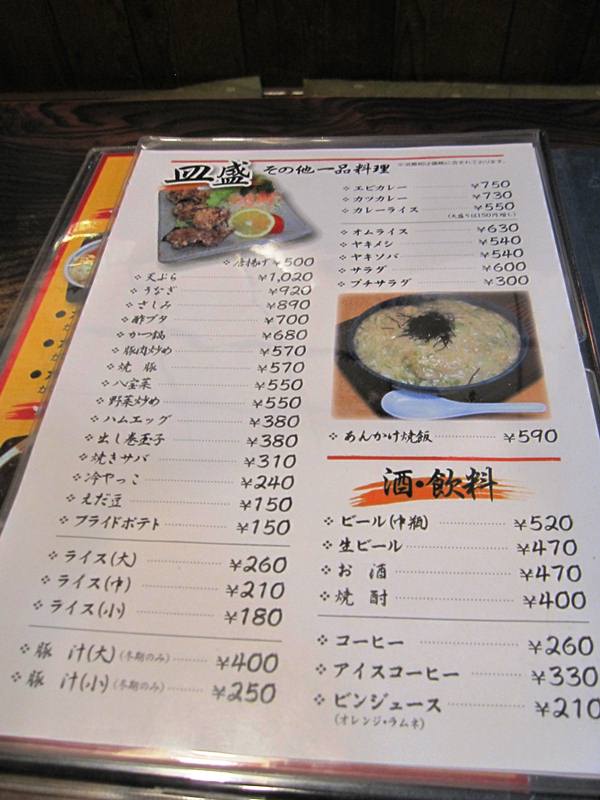 皿盛
❖唐揚げ ¥500
❖天ぷら ¥1,020
❖うなぎ ¥920
❖さしみ ¥890
❖酢ブタ ¥700
❖かつ鍋 ¥680
❖豚肉炒め ¥570
❖焼 豚 ¥570
❖八宝菜 ¥550
❖野菜炒め ¥550
❖ハムエッグ ¥380
❖出し巻玉子 ¥380
❖焼きサバ ¥310
❖冷やっこ ¥240
❖えだ豆 ¥150
❖フライドポテト ¥150
❖ライス(大) ¥260
❖ライス(中) ¥210
❖ライス(小) ¥180
❖豚 汁(大)(冬期のみ) ¥400
❖豚 汁(小)(冬期のみ) ¥250
その他一品料理
※消費税は価格に含まれております。
❖エビカレー ¥750
❖カツカレー ¥730
❖カレーライス ¥550
(大盛りは150円増し)
❖オムライス ¥630
❖ヤキメシ ¥540
❖ヤキソバ ¥540
❖サラダ ¥600
❖プチサラダ ¥300
❖あんかけ焼飯 ¥590
酒・飲料
❖ビール(中瓶) ¥520
❖生ビール ¥470
❖お 酒 ¥470
❖焼 酎 ¥400
❖コーヒー ¥260
❖アイスコーヒー ¥330
❖ビンジュース ¥210
(オレンジ・ラムネ)